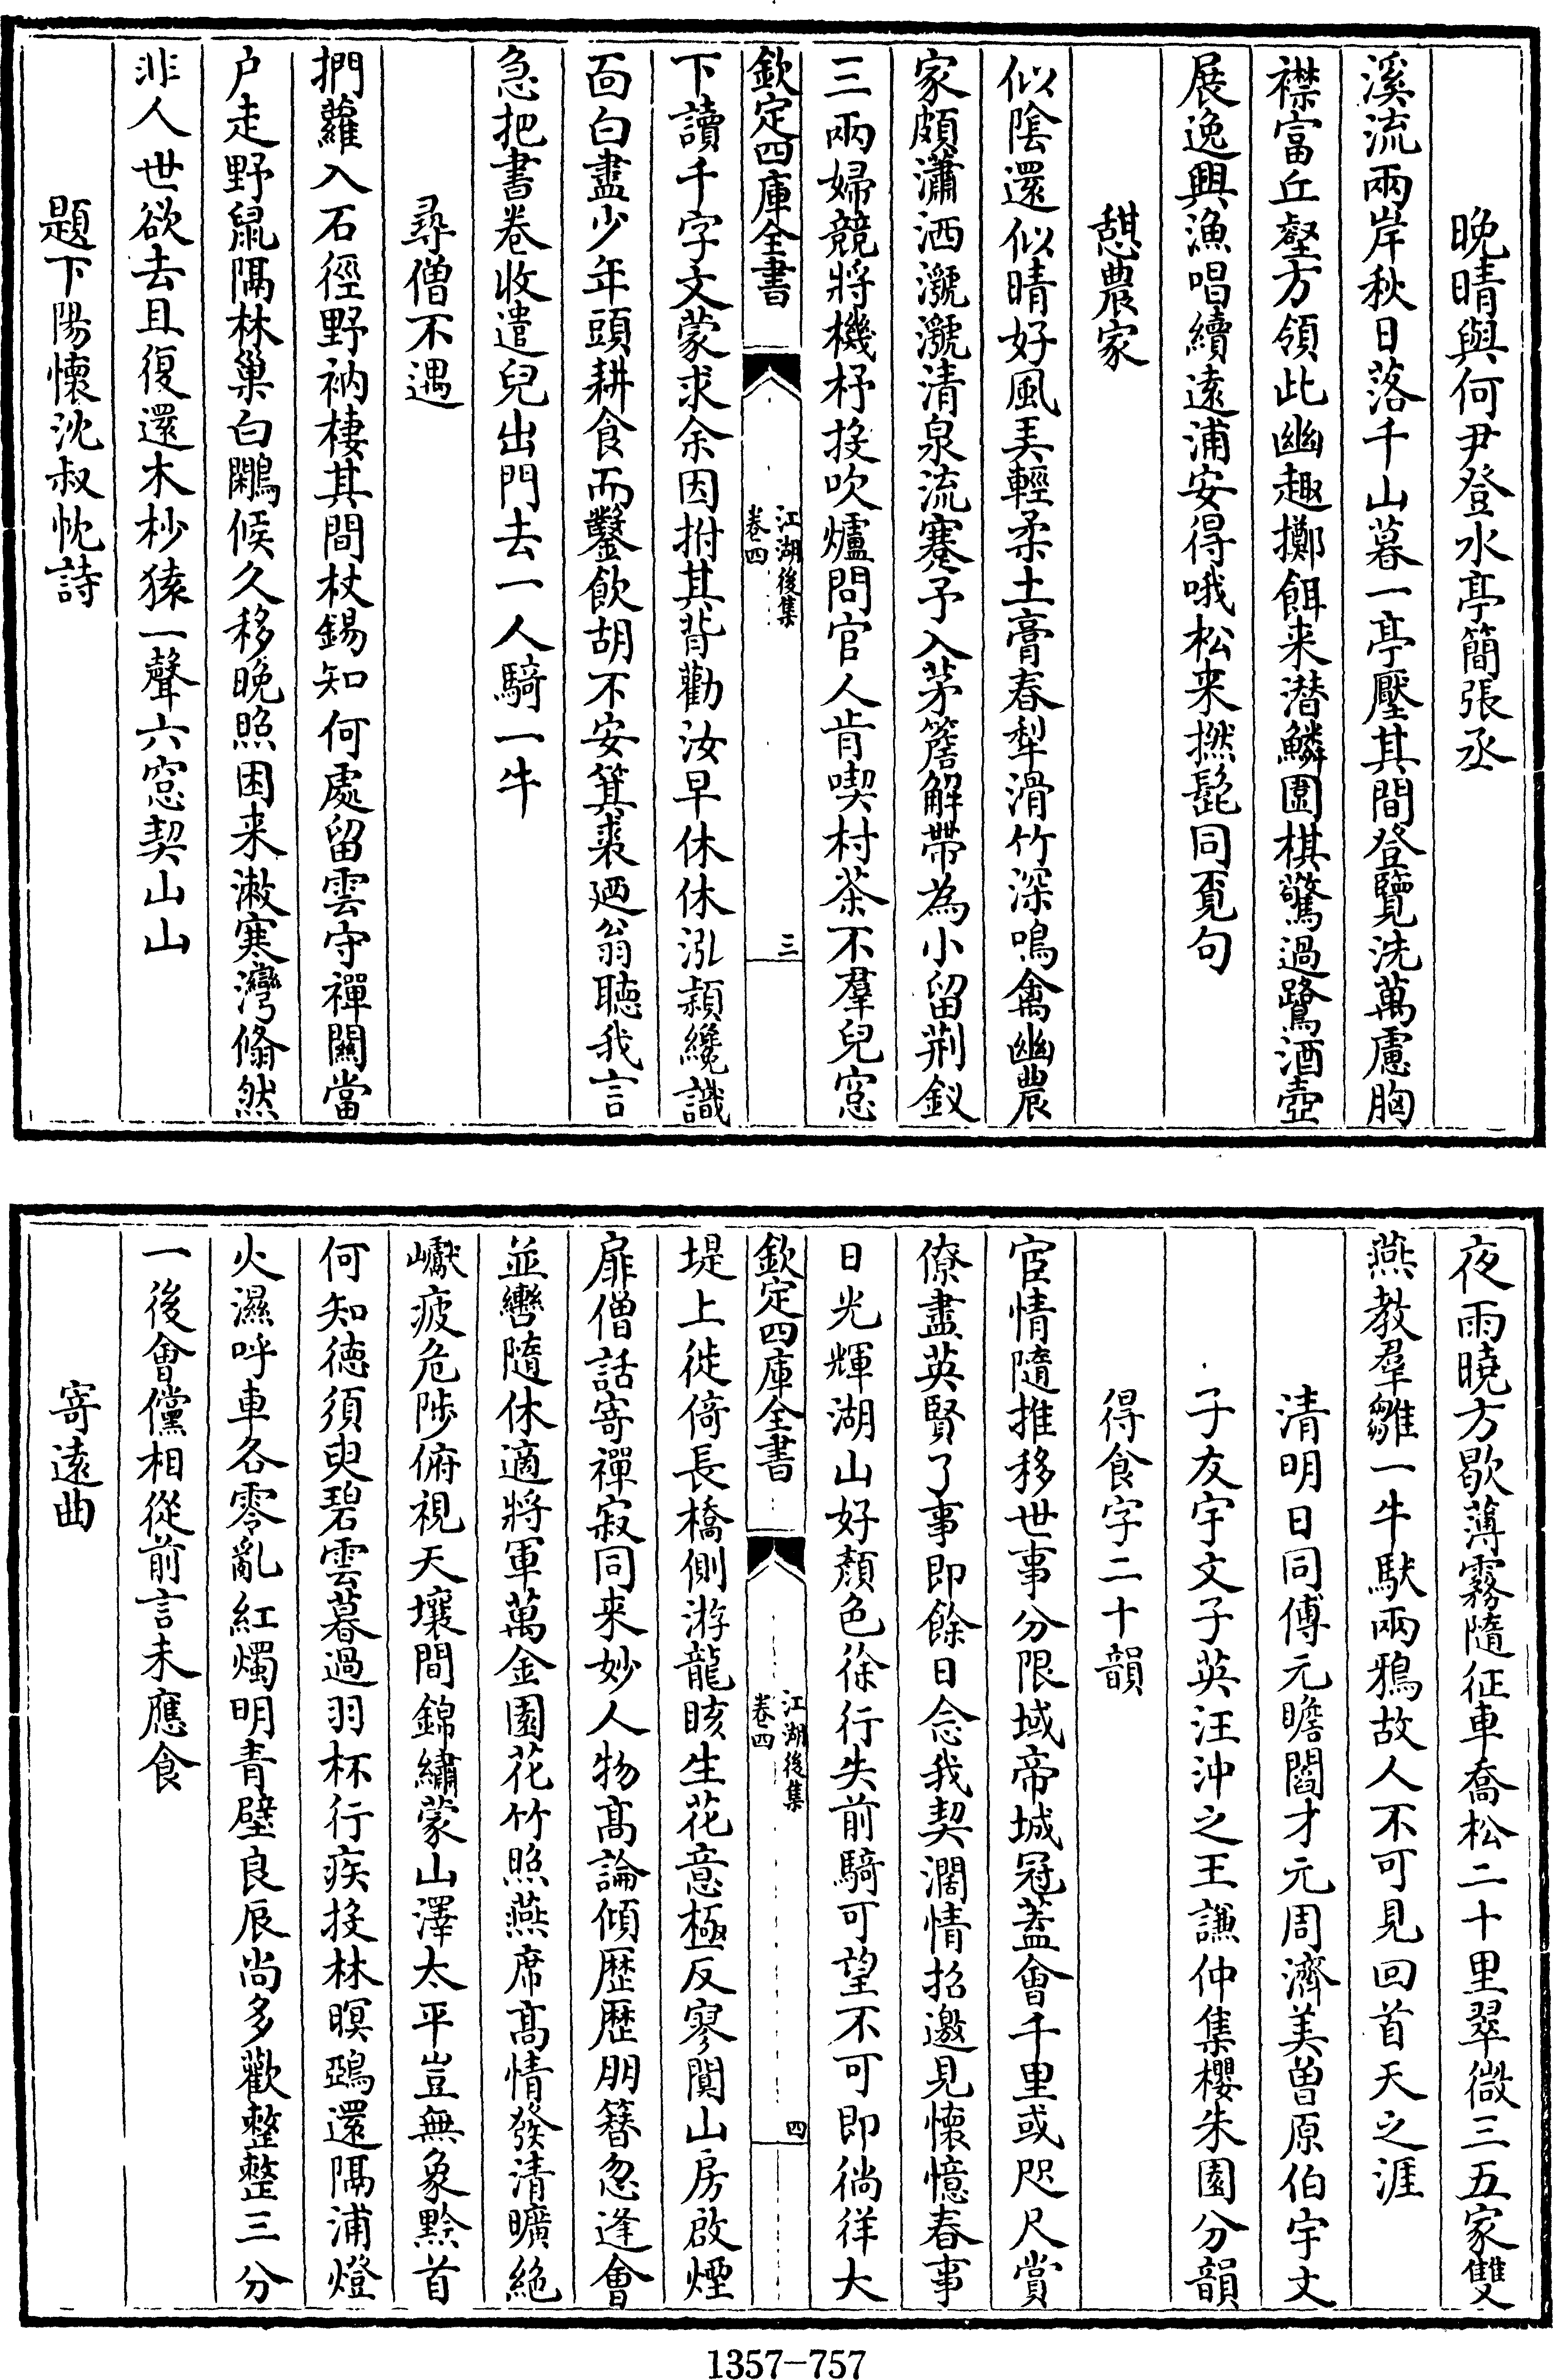 晚晴與何尹登水亭簡張丞
溪流兩岸秋日落千山暮一亭壓其間登覽洗萬慮胸
襟富丘壑方領此幽趣擲餌来潜鱗圍棋驚過鷺酒壺
展逸興漁唱續遠浦安得哦松来撚髭同覓句
憇農家
似陰還似晴好風美輕柔土膏春犁滑竹深鳴禽幽農
家頗瀟洒㶁㶁清泉流蹇予入茅簷解帶為小留荆釵
三兩婦競將機杼投吹爐問官人肯喫村茶不羣兒窓
欽定四庫全書
江湖後集
卷四
三
下讀千字文蒙求余因拊其背勸汝早休休泓頴纔識
面白盡少年頭耕食而鑿飲胡不安箕裘廼翁聽我言
急把書卷收遣兒出門去一人騎一牛
尋僧不遇
捫蘿入石徑野衲棲其間杖錫知何處留雲守禪關當
户走野鼠隔林巢白鷴候久移晚照困来漱寒灣翛然
非人世欲去且復還木杪猿一聲六窓契山山
題下陽懷沈叔忱詩
夜雨曉方歇薄霧隨征車喬松二十里翠微三五家雙
燕教羣雛一牛馱兩鴉故人不可見回首天之涯
清明日同傅元瞻閻才元周濟美曽原伯宇文
子友宇文子英汪沖之王謙仲集櫻朱園分韻
得食字二十韻
宦情隨推移世事分限域帝城冠蓋會千里或咫尺賞
僚盡英賢了事即餘日念我契濶情招邀見懷憶春事
日光輝湖山好顏色徐行失前騎可望不可即徜徉大
欽定四庫全書
江湖後集
卷四
四
堤上徙倚長橋側游龍眩生花意極反寥闃山房啟煙
扉僧話寄禪寂同来妙人物髙論傾歴歴朋簪忽逢會
並轡隨休適將軍萬金園花竹照燕席髙情發清曠絶
巘疲危陟俯視天壤間錦繡蒙山澤太平豈無象黔首
何知徳須臾碧雲暮過羽杯行疾投林暝鵶還隔浦燈
火濕呼車各零亂紅燭明青壁良辰尚多歡整整三分
一後會儻相從前言未應食
寄遠曲
1357-757